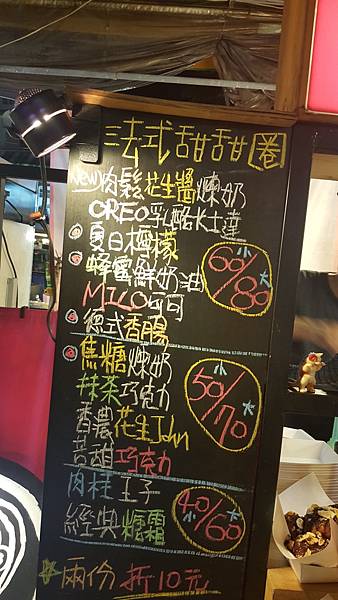 法式甜甜圈
New肉鬆花生醬煉奶
OREO乳酪卡士達
夏日檸檬
蜂蜜鮮奶油
MILO可可
德式香腸
小大
60/80
焦糖煉奶
抹茶巧克力
香濃花生John
苦甜巧克力
小大
50/70
肉桂王子
經典糖霜
小大
40/60
兩份折10元